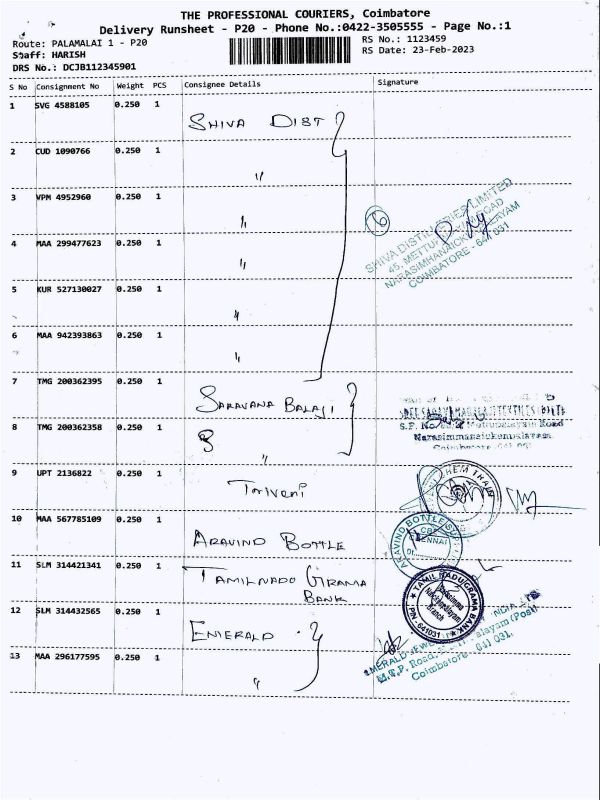 THE PROFESSIONAL COURIERS, Coimbatore
Delivery Runsheet - P20 - Phone No.:0422-3505555 - Page No.:1
Route: PALAMALAI 1 - P20
RS No.: 1123459
Staff: HARISH
RS Date: 23-Feb-2023
DRS No.: DCJB112345901
S No Consignment No Weight PCS Consignee Details Signature
1 SVG 4588105 0.250 1 SHIVA DIST
2 CUD 1090766 0.250 1 "
3 VPM 4952960 0.250 1 "
4 MAA 299477623 0.250 1 "
5 KUR 527130027 0.250 1 "
6 MAA 942393863 0.250 1 "
SHIVA DISTILLERIES LIMITED
45, METTUPALAYAM ROAD
NARASIMHANAICKENPALAYAM
COIMBATORE - 641 031
7 TMG 200362395 0.250 1 SARAVANA BALAJI
8 TMG 200362358 0.250 1 "
S.F. No. Mettupalayam Road
Narasimmanaickenpalayam
Coimbatore
9 UPT 2136822 0.250 1 Triveni
CHEM TRADE
10 MAA 567785109 0.250 1 ARAVIND BOTTLE
ARAVIND BOTTLE
CHENNAI
11 SLM 314421341 0.250 1 TAMILNADO GRAMA
BANK
TAMIL NADU GRAMA BANK
Branch
PIN - 641031
12 SLM 314432565 0.250 1 EMERALD
13 MAA 296177595 0.250 1 "
EMERALD JEWEL INDIA
M.T.P. Road, (Post)
Coimbatore - 641 031.